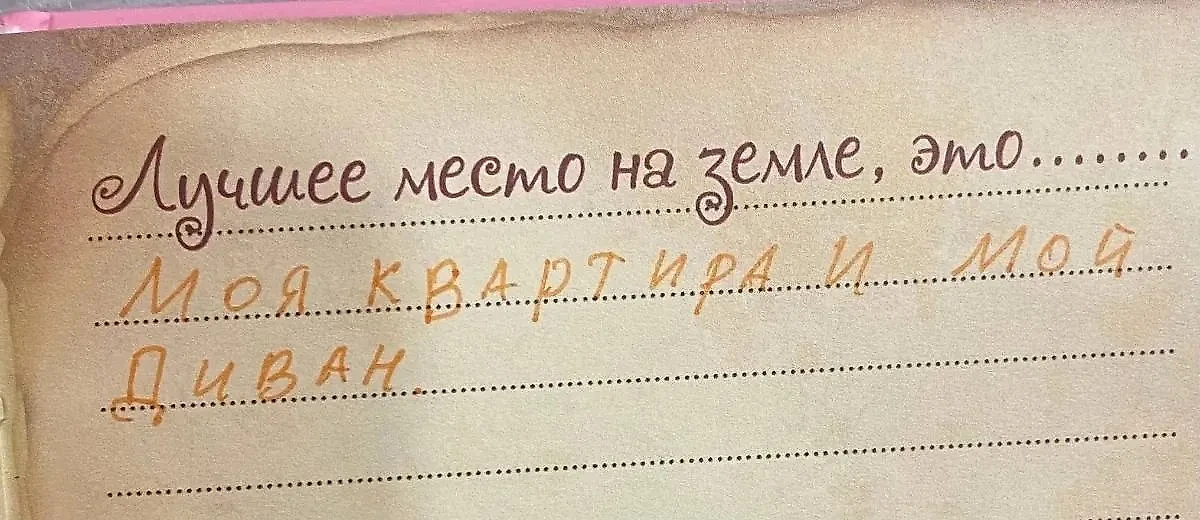 Лучшее место на земле, это........
Моя квартира и мой
диван.